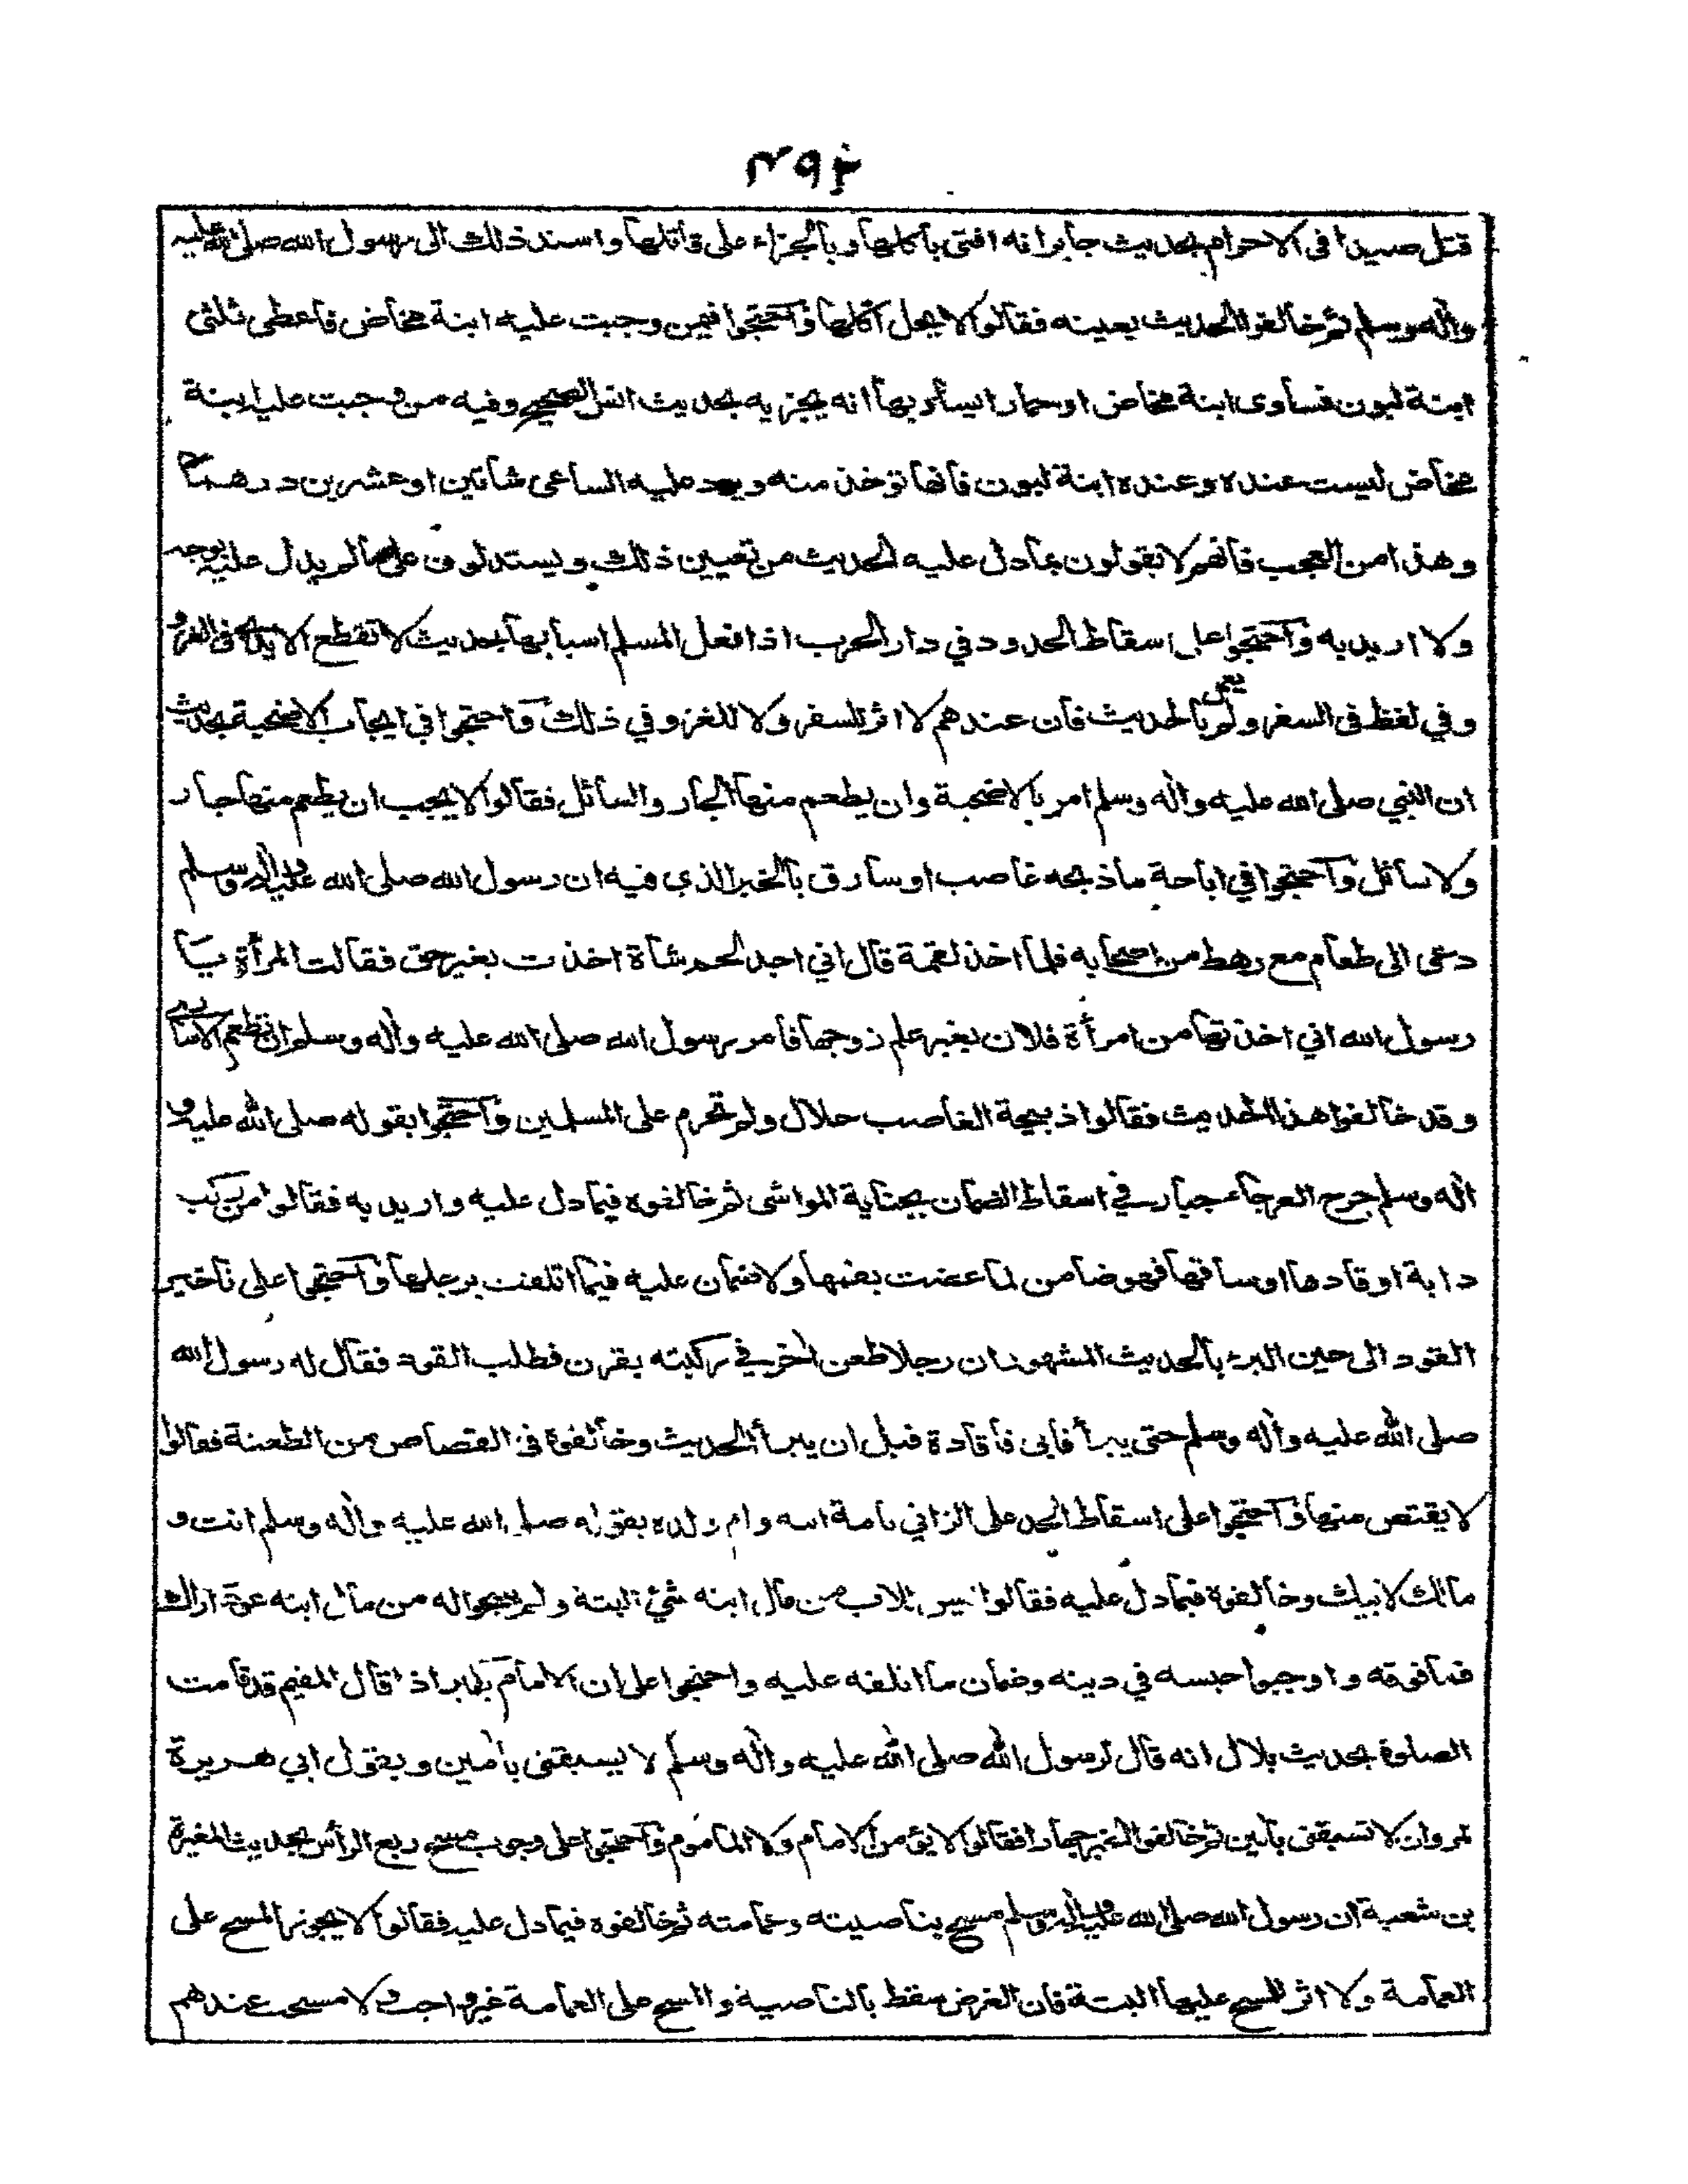 ٤٩٣
قتل صيدا فى الاحرام بحديث جابر انه افتى باكلها و بالجزاء على قاتلها واسند ذلك الى رسول الله صلى الله عليه
واٰله وسلم ثم خالفوا الحديث بعينه فقالوا لا يحل اكلها وَاحتجوا فيمن وجبت عليه ابنة مخاض فاعطى ثلثى
ابنة لبون فساوى ابنة مخاض او حمارا يساويها انه يجزيه بحديث انس الصحيح وفيه من وجبت عليه ابنة
مخاض ليست عنده وعنده ابنة لبون فانها توخذ منه ويرد عليه الساعى شاتين او عشرين درهما
وهذا من العجب فانهم لا يقولون بما دل عليه الحديث من تعيين ذلك ويستدلون على ما لم يدل عليه بوجه
ولا اريد به وَاحتجوا على اسقاط الحدود في دار الحرب اذا فعل المسلم اسبابها بحديث لا تقطع الايدى فى الغزو
وفي لفظ فى السفر ولم بالحديث فان عندهم لا اثر للسفر ولا للغزو في ذلك وَاحتجوا في ايجاب الاضحية بحديث
ان النبي صلى الله عليه واٰله وسلم امر بالاضحية وان يطعم منها الجار والسائل فقالوا لا يجب ان يطعم منها جار
ولا سائل وَاحتجوا في اباحة ما ذبحه غاصب او سارق بالخبر الذي فيه ان رسول الله صلى الله عليه واٰله وسلم
دعى الى طعام مع رهط من اصحابه فلما اخذ لقمة قال اني اجد لحم شاة اخذت بغير حق فقالت المرأة يا
رسول الله اني اخذتها من امرأة فلان بغير علم زوجها فامر رسول الله صلى الله عليه واٰله وسلم ان تطعم الاسارى
وقد خالفوا هذا الحديث فقالوا ذبيحة الغاصب حلال ولم تحرم على المسلمين وَاحتجوا بقوله صلى الله عليه و
اٰله وسلم جرح العجماء جبار في اسقاط الضمان بجناية المواشى ثم خالفوه فيما دل عليه واريد به فقالوا من ركب
دابة او قادها او ساقها فهو ضامن لما عضت بفمها ولا ضمان عليه فيما اتلفت برجلها وَاحتجوا على تاخير
القود الى حين البرء بالحديث المشهور ان رجلا طعن اٰخر في ركبته بقرن فطلب القود فقال له رسول الله
صلى الله عليه واٰله وسلم حتى يبرأ فابى فاقاده قبل ان يبرأ الحديث وخالفوه فى القصاص من الطعنة فقالوا
لا يقتص منها وَاحتجوا على اسقاط الحد على الزاني بامة ابنه وام ولده بقوله صلى الله عليه واٰله وسلم انت و
مالك لابيك وخالفوه فيما دل عليه فقالوا ليس للاب من مال ابنه شئ البتة ولم يبيحوا له من مال ابنه عود اراك
فما فوقه واوجبوا حبسه في دينه وضمان ما اتلفه عليه واحتجوا على ان الامام يكبر اذا قال المقيم قد قامت
الصلوة بحديث بلال انه قال لرسول الله صلى الله عليه واٰله وسلم لا يسبقنى باٰمين وبقول ابي هريرة
لمروان لا تسبقنى باٰمين ثم خالفوا الخبر جهارا فقالوا لا يؤمن الامام ولا الماموم وَاحتجوا على وجوب مسح ربع الرأس بحديث المغيرة
بن شعبة ان رسول الله صلى الله عليه واٰله وسلم مسح بناصيته وعمامته ثم خالفوه فيما دل عليه فقالوا لا يجوز المسح على
العمامة ولا اثر للمسح عليها البتة فان الفرض سقط بالناصية والمسح على العمامة غير واجب ولا مسحى عندهم